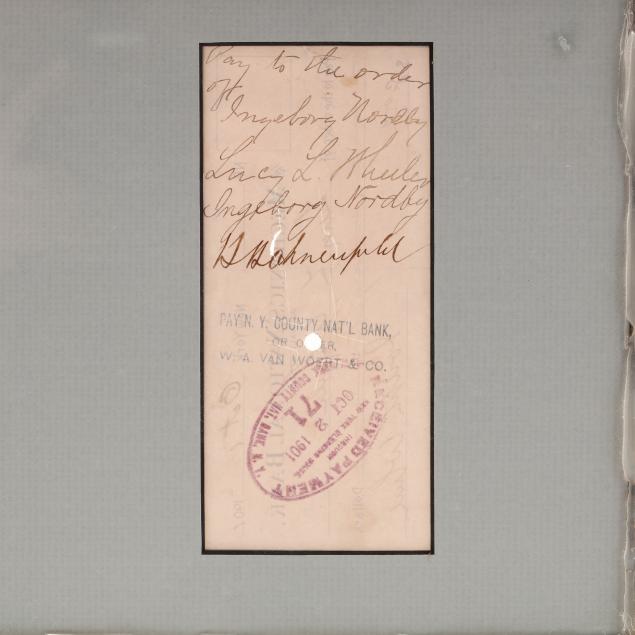 Pay to the order
of
Ingeborg Nordby
Lucy L. Wheeler
Ingeborg Nordby
PAY N. Y. COUNTY NAT'L BANK,
OR ORDER,
W. A. VAN WOERT & CO.
RECEIVED PAYMENT
THROUGH
NEW YORK CLEARING HOUSE
OCT 2 1901
71
COUNTY NAT. BANK, N. Y.